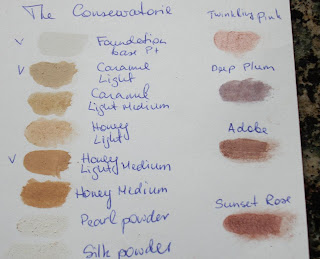 The Conservatorie
v Foundation
base P+
v Caramel
Light
Caramel
Light Medium
Honey
Light
v Honey
Light/Medium
Honey Medium
Pearl powder
Silk powder
Twinkling Pink
Deep Plum
Adobe
Sunset Rose